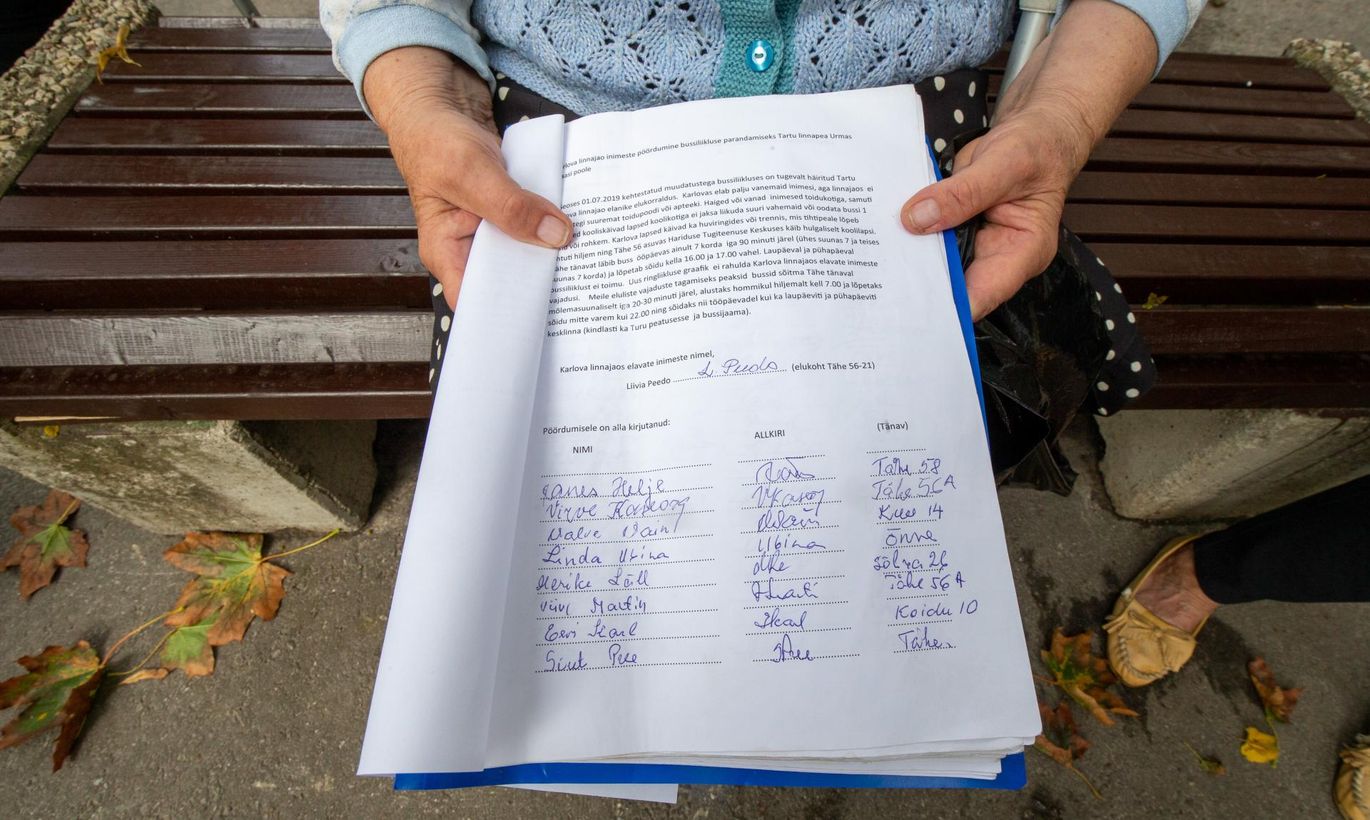 Karlova linnajao inimeste pöördumine bussiliikluse parandamiseks Tartu linnapea Urmas
poole
Seoses 01.07.2019 kehtestatud muudatustega bussiliikluses on tugevalt häiritud Tartu
linnajao elanike elukorraldus. Karlovas elab palju vanemaid inimesi, aga linnajaos ei
suuremat toidupoodi või apteeki. Haiged või vanad inimesed toidukotiga, samuti
kooliskäivad lapsed koolikotiga ei jaksa liikuda suuri vahemaid või oodata bussi 1
või rohkem. Karlova lapsed käivad ka huviringides või trennis, mis tihtipeale lõpeb
hiljem ning Tähe 56 asuvas Hariduse Tugiteenuse Keskuses käib hulgaliselt koolilapsi.
tänavat läbib buss ööpäevas ainult 7 korda iga 90 minuti järel (ühes suunas 7 ja teises
suunas 7 korda) ja lõpetab sõidu kella 16.00 ja 17.00 vahel. Laupäeval ja pühapäeval
bussiliiklust ei toimu. Uus ringliikluse graafik ei rahulda Karlova linnajaos elavate inimeste
vajadusi. Meile eluliste vajaduste tagamiseks peaksid bussid sõitma Tähe tänaval
mõlemasuunaliselt iga 20-30 minuti järel, alustaks hommikul hiljemalt kell 7.00 ja lõpetaks
sõidu mitte varem kui 22.00 ning sõidaks nii tööpäevadel kui ka laupäeviti ja pühapäeviti
kesklinna (kindlasti ka Turu peatusesse ja bussijaama).
Karlova linnajaos elavate inimeste nimel,
Liivia Peedo L. Peedo (elukoht Tähe 56-21)
Pöördumisele on alla kirjutanud:
NIMI ALLKIRI (Tänav)
Helje Tähe 58
Virve Tähe 56A
14
Linda Ubina Ubina Õnne
Merike Läll 26
Viivi Martin Tähe 56A
Eevi Koidu 10
Siret Tähe